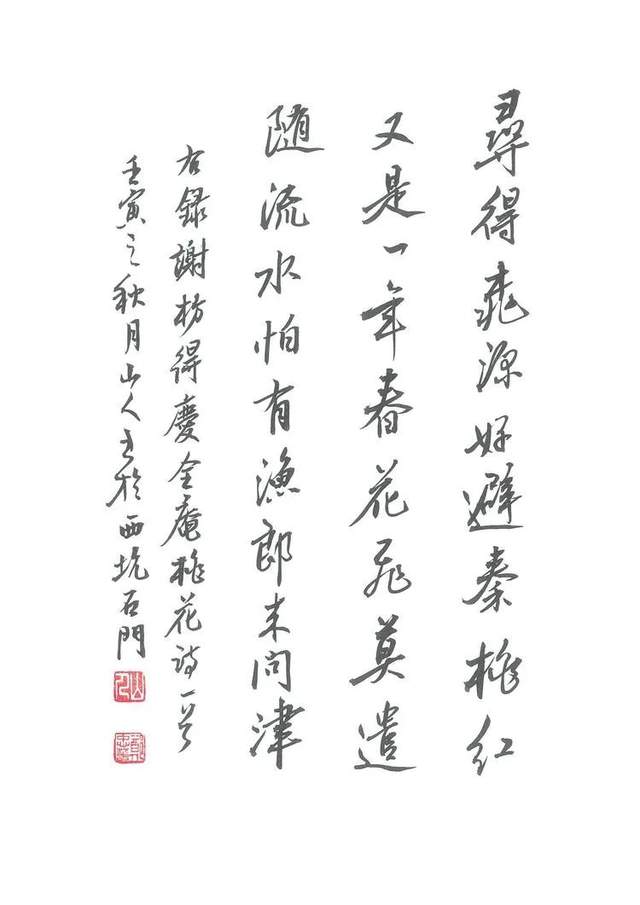 尋得桃源好避秦桃紅
又是一年春花飛莫遣
随流水怕有漁郎来問津
右録謝枋得慶全庵桃花詩一首
壬寅之秋月山人書於西坑石門
山人